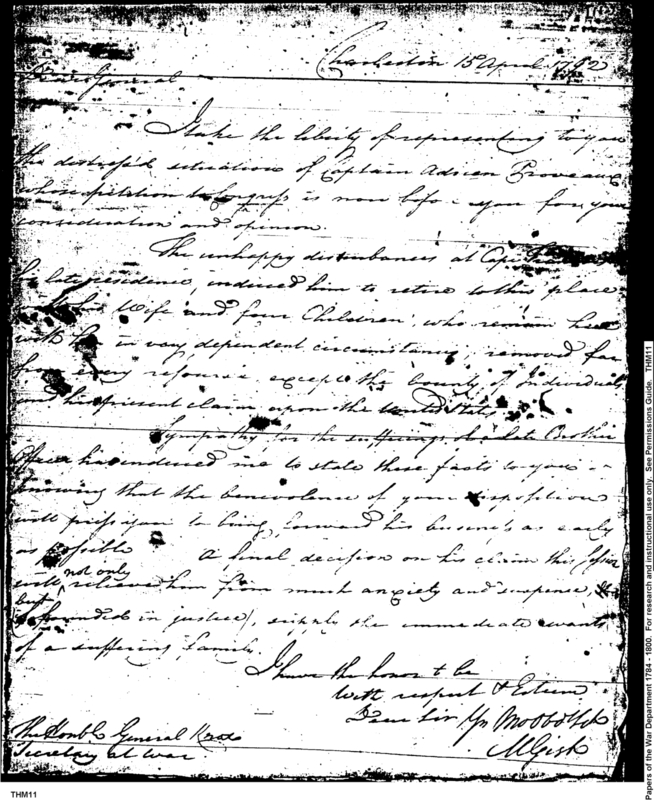 Charleston 15 April 1792
Dear General
I take the liberty of representing to you
the distress'd situation of Captain Adrien Proveaux
whose petition to Congress is now before you for your
consideration and opinion.
The unhappy disturbances at Cape
his late residence, induced him to retire to this place
Wife and four Children, who remain here
with him in very dependent circumstances, removed far
from every resource except the bounty of Individuals
and his present claim upon the United States.
Sympathy for the sufferings of a late Brother
Officer has induced me to state these facts to you
knowing that the benevolence of your disposition
will press you to bring forward his business as early
as possible A final decision on his claim this Session
will not only relieve him from much anxiety and suspense,
but if founded in justice, supply the immediate wants
of a suffering family.
I have the honor to be
With respect & Esteem
Dear Sir Yr Mo Ob St
M Gist
The Honble General Knox
Secretary at War
THM11
Papers of the War Department 1784 - 1800. For research and instructional use only. See Permissions Guide. THM11